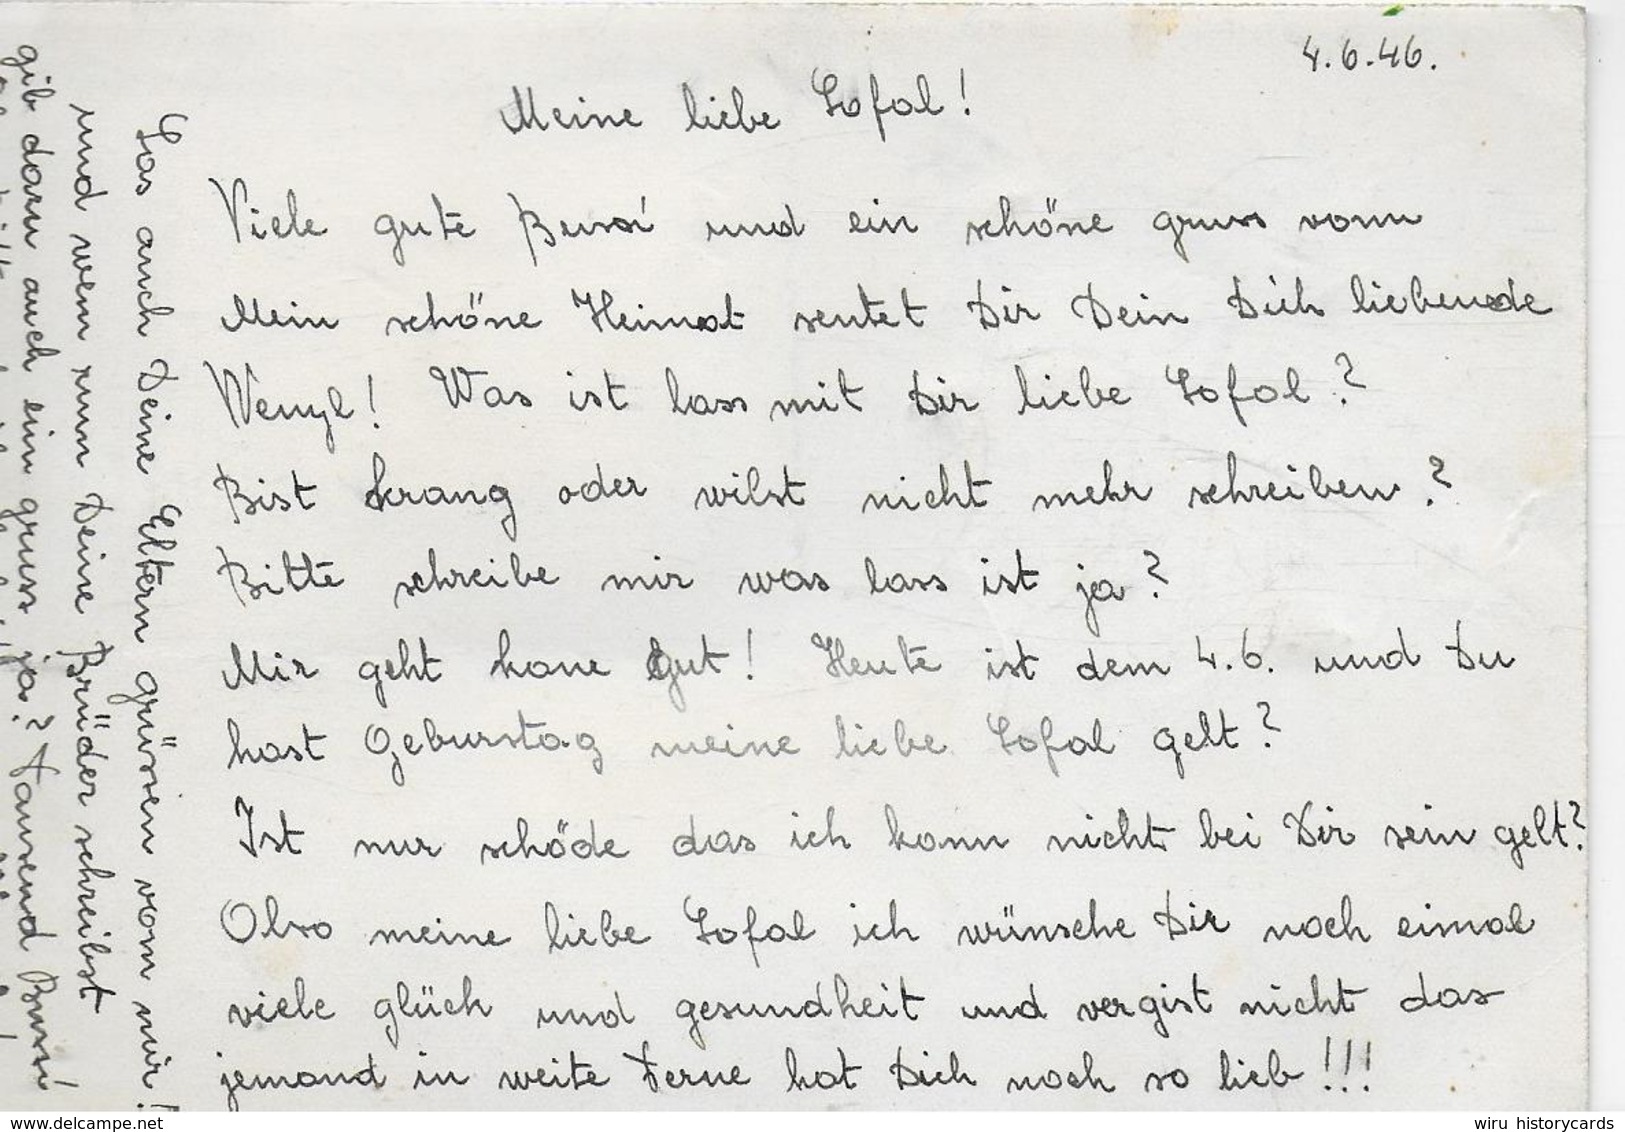 4.6.46.
Meine liebe Lofal!
Viele gute Bussi und ein schöne gruss vom
Mein schöne Heimat sentet Dir Dein Dich liebende
Wenyl! Was ist lass mit Dir liebe Lofal?
Bist krang oder wilst nicht mehr schreiben?
Bitte schreibe mir was lass ist ja?
Mir geht kane Gut! Heute ist dem 4.6. und Du
hast Geburstag meine liebe Lofal gelt?
Ist nur schöde das ich kann nicht bei Dir sein gelt?
Also meine liebe Lofal ich wünsche Dir noch eimal
viele glück und gesundheit und vergist nicht das
jemand in weite Ferne hat Dich noch so lieb!!!
Las auch Deine Eltern grüssen vom mir!
und wen zum Deine Brüder schreibst
gib dazu auch ein gruss ja? Tausend Bussi
wiru historycards
www.delcampe.net